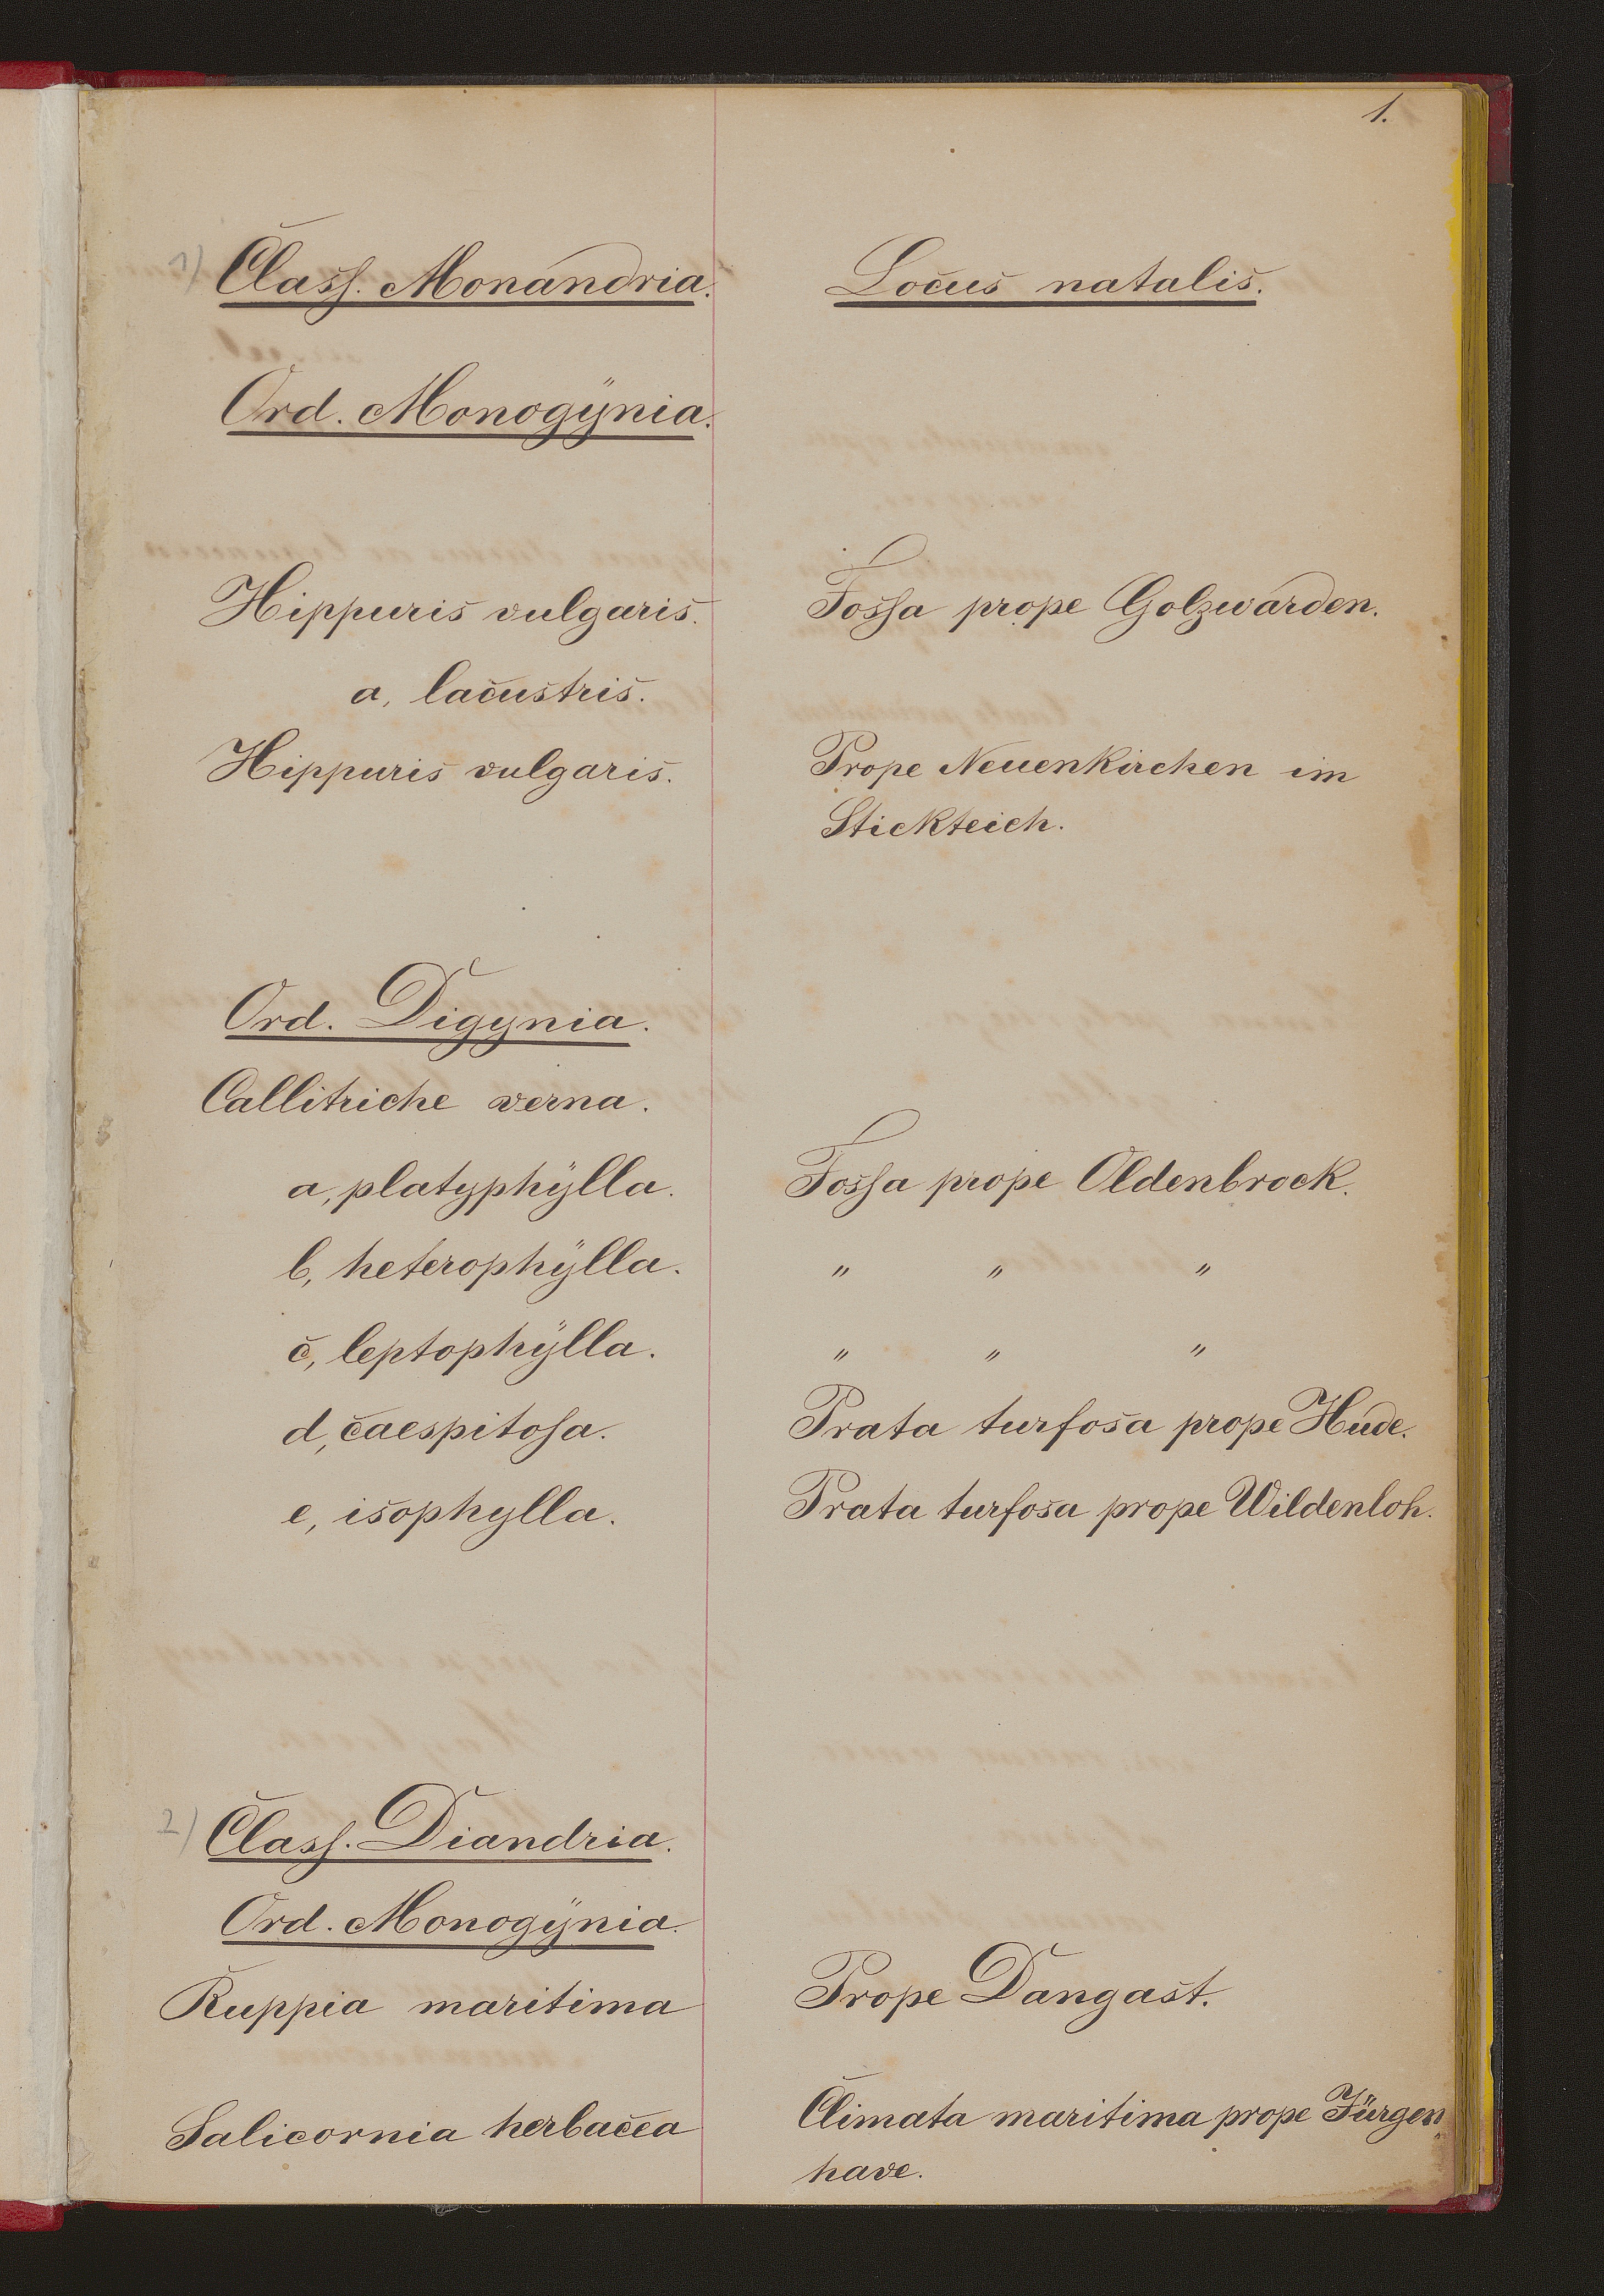 1.
1) Class. Monandria. Locus natalis.
Ord. Monogÿnia.
Hippuris vulgaris. Fossa prope Golzwarden.
a, lacustris.
Hippuris vulgaris. Prope Neuenkirchen im
Stickteich.
Ord. Digynia.
Callitriche verna.
a, platyphÿlla. Fossa prope Oldenbrock.
b, heterophÿlla. " " "
c, leptophÿlla. " " "
d, caespitosa. Prata turfosa prope Hude.
e, isophylla. Prata turfosa prope Wildenloh.
2) Class. Diandria.
Ord. Monogÿnia.
Ruppia maritima Prope Dangast.
Salicornia herbacea Climata maritima prope Jürgen„
have.